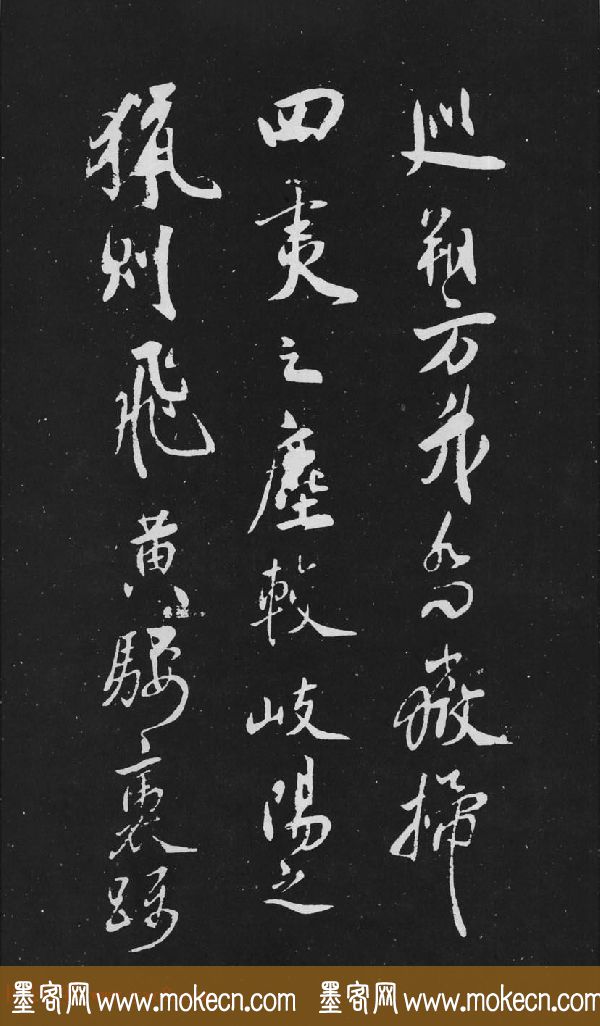 巡朔方升喬嶽掃
四夷之塵較岐陽之
獵則飛黄騕褭躡
墨客网 www.mokecn.com 墨客网 www.mokecn.com